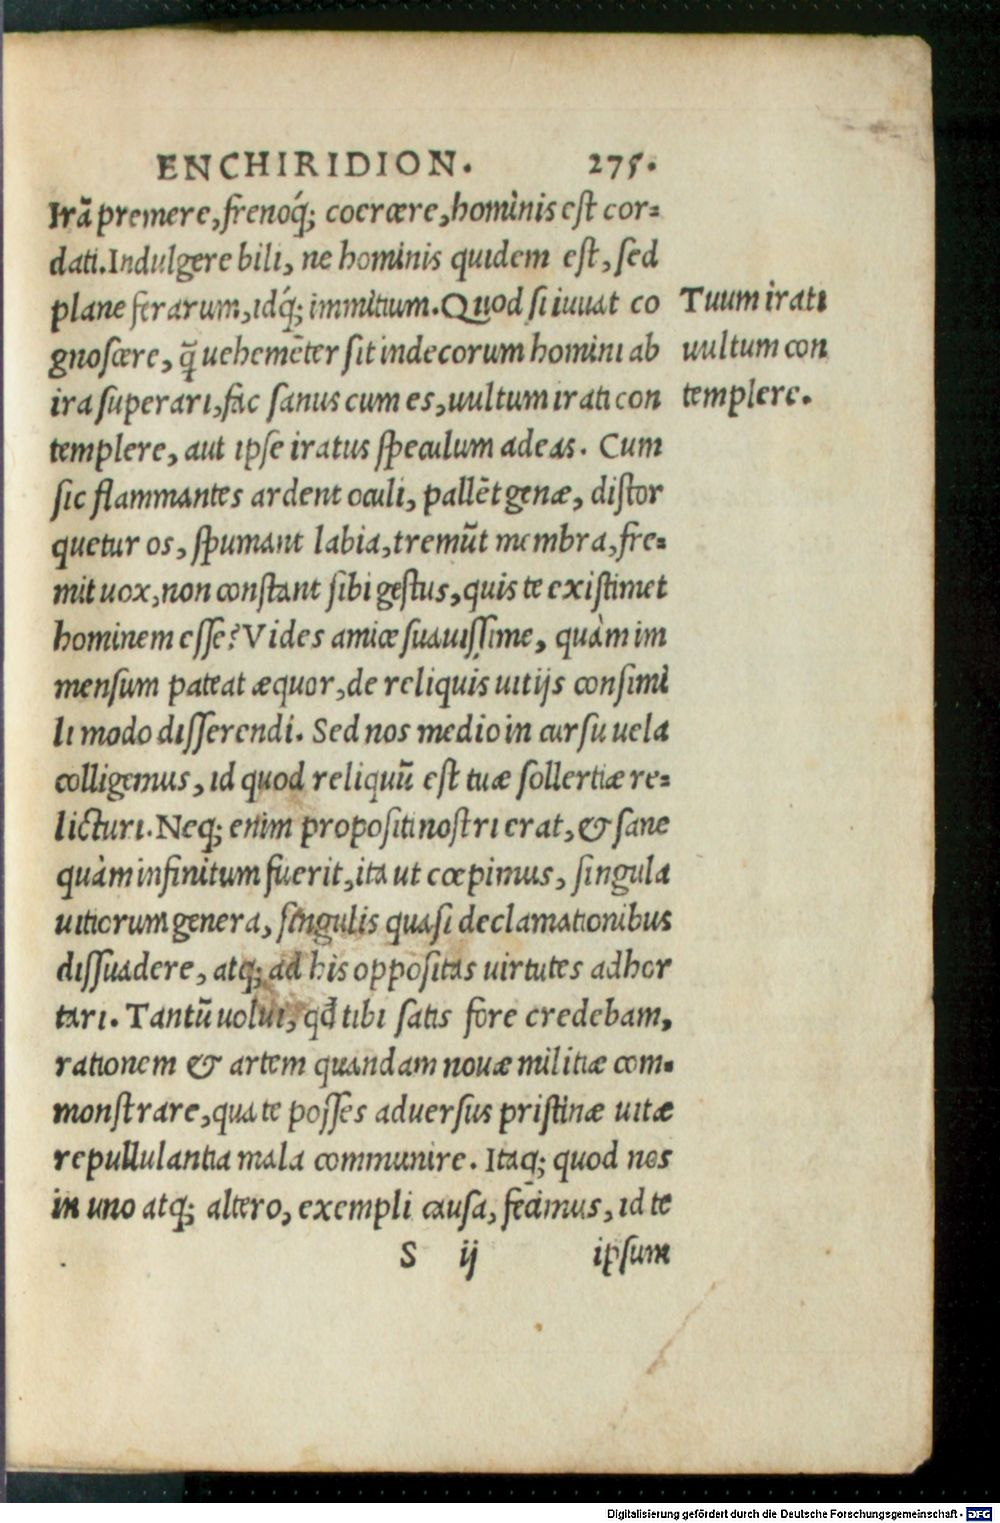 ENCHIRIDION. 275.
Irā premere, frenoq́; coercere, hominis est cor=
dati. Indulgere bili, ne hominis quidem est, sed
plane ferarum, idq́; immitium. Quod si iuuat co
gnoscere, q̄ uehemēter sit indecorum homini ab
ira superari, fac sanus cum es, uultum irati con
templere, aut ipse iratus speculum adeas. Cum
sic flammantes ardent oculi, pallēt genæ, distor
quetur os, spumant labia, tremūt membra, fre=
mit uox, non constant sibi gestus, quis te existimet
hominem esse? Vides amice suauissime, quàm im
mensum pateat æquor, de reliquis uitijs consimi
li modo disserendi. Sed nos medio in cursu uela
colligemus, id quod reliquū est tuæ sollertiæ re=
licturi. Neq; enim propositi nostri erat, & sane
quàm infinitum fuerit, ita ut cœpimus, singula
uitiorum genera, singulis quasi declamationibus
dissuadere, atq; ad his oppositas uirtutes adhor
tari. Tantū uolui, qđ tibi satis fore credebam,
rationem & artem quandam nouæ militiæ com=
monstrare, qua te posses aduersus pristinæ uitæ
repullulantia mala communire. Itaq; quod nos
in uno atq; altero, exempli causa, fecimus, id te
S ij ipsum
Tuum irati
uultum con
templere.
Digitalisierung gefördert durch die Deutsche Forschungsgemeinschaft - DFG